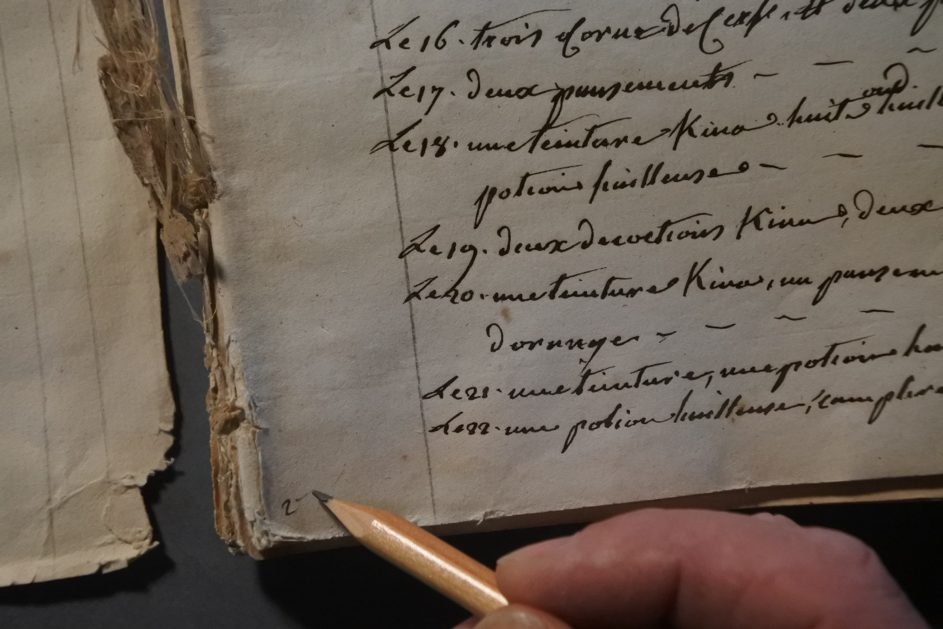 Le 16. trois Corne de Cerf et deux
Le 17. deux pansements
Le 18. une teinture Kina huit
potion huilleuse
Le 19. deux decoctions Kina, deux
Le 20. une teinture Kina, un
d'orange
Le 21. une teinture, une potion
Le 22. une potion huilleuse,
2